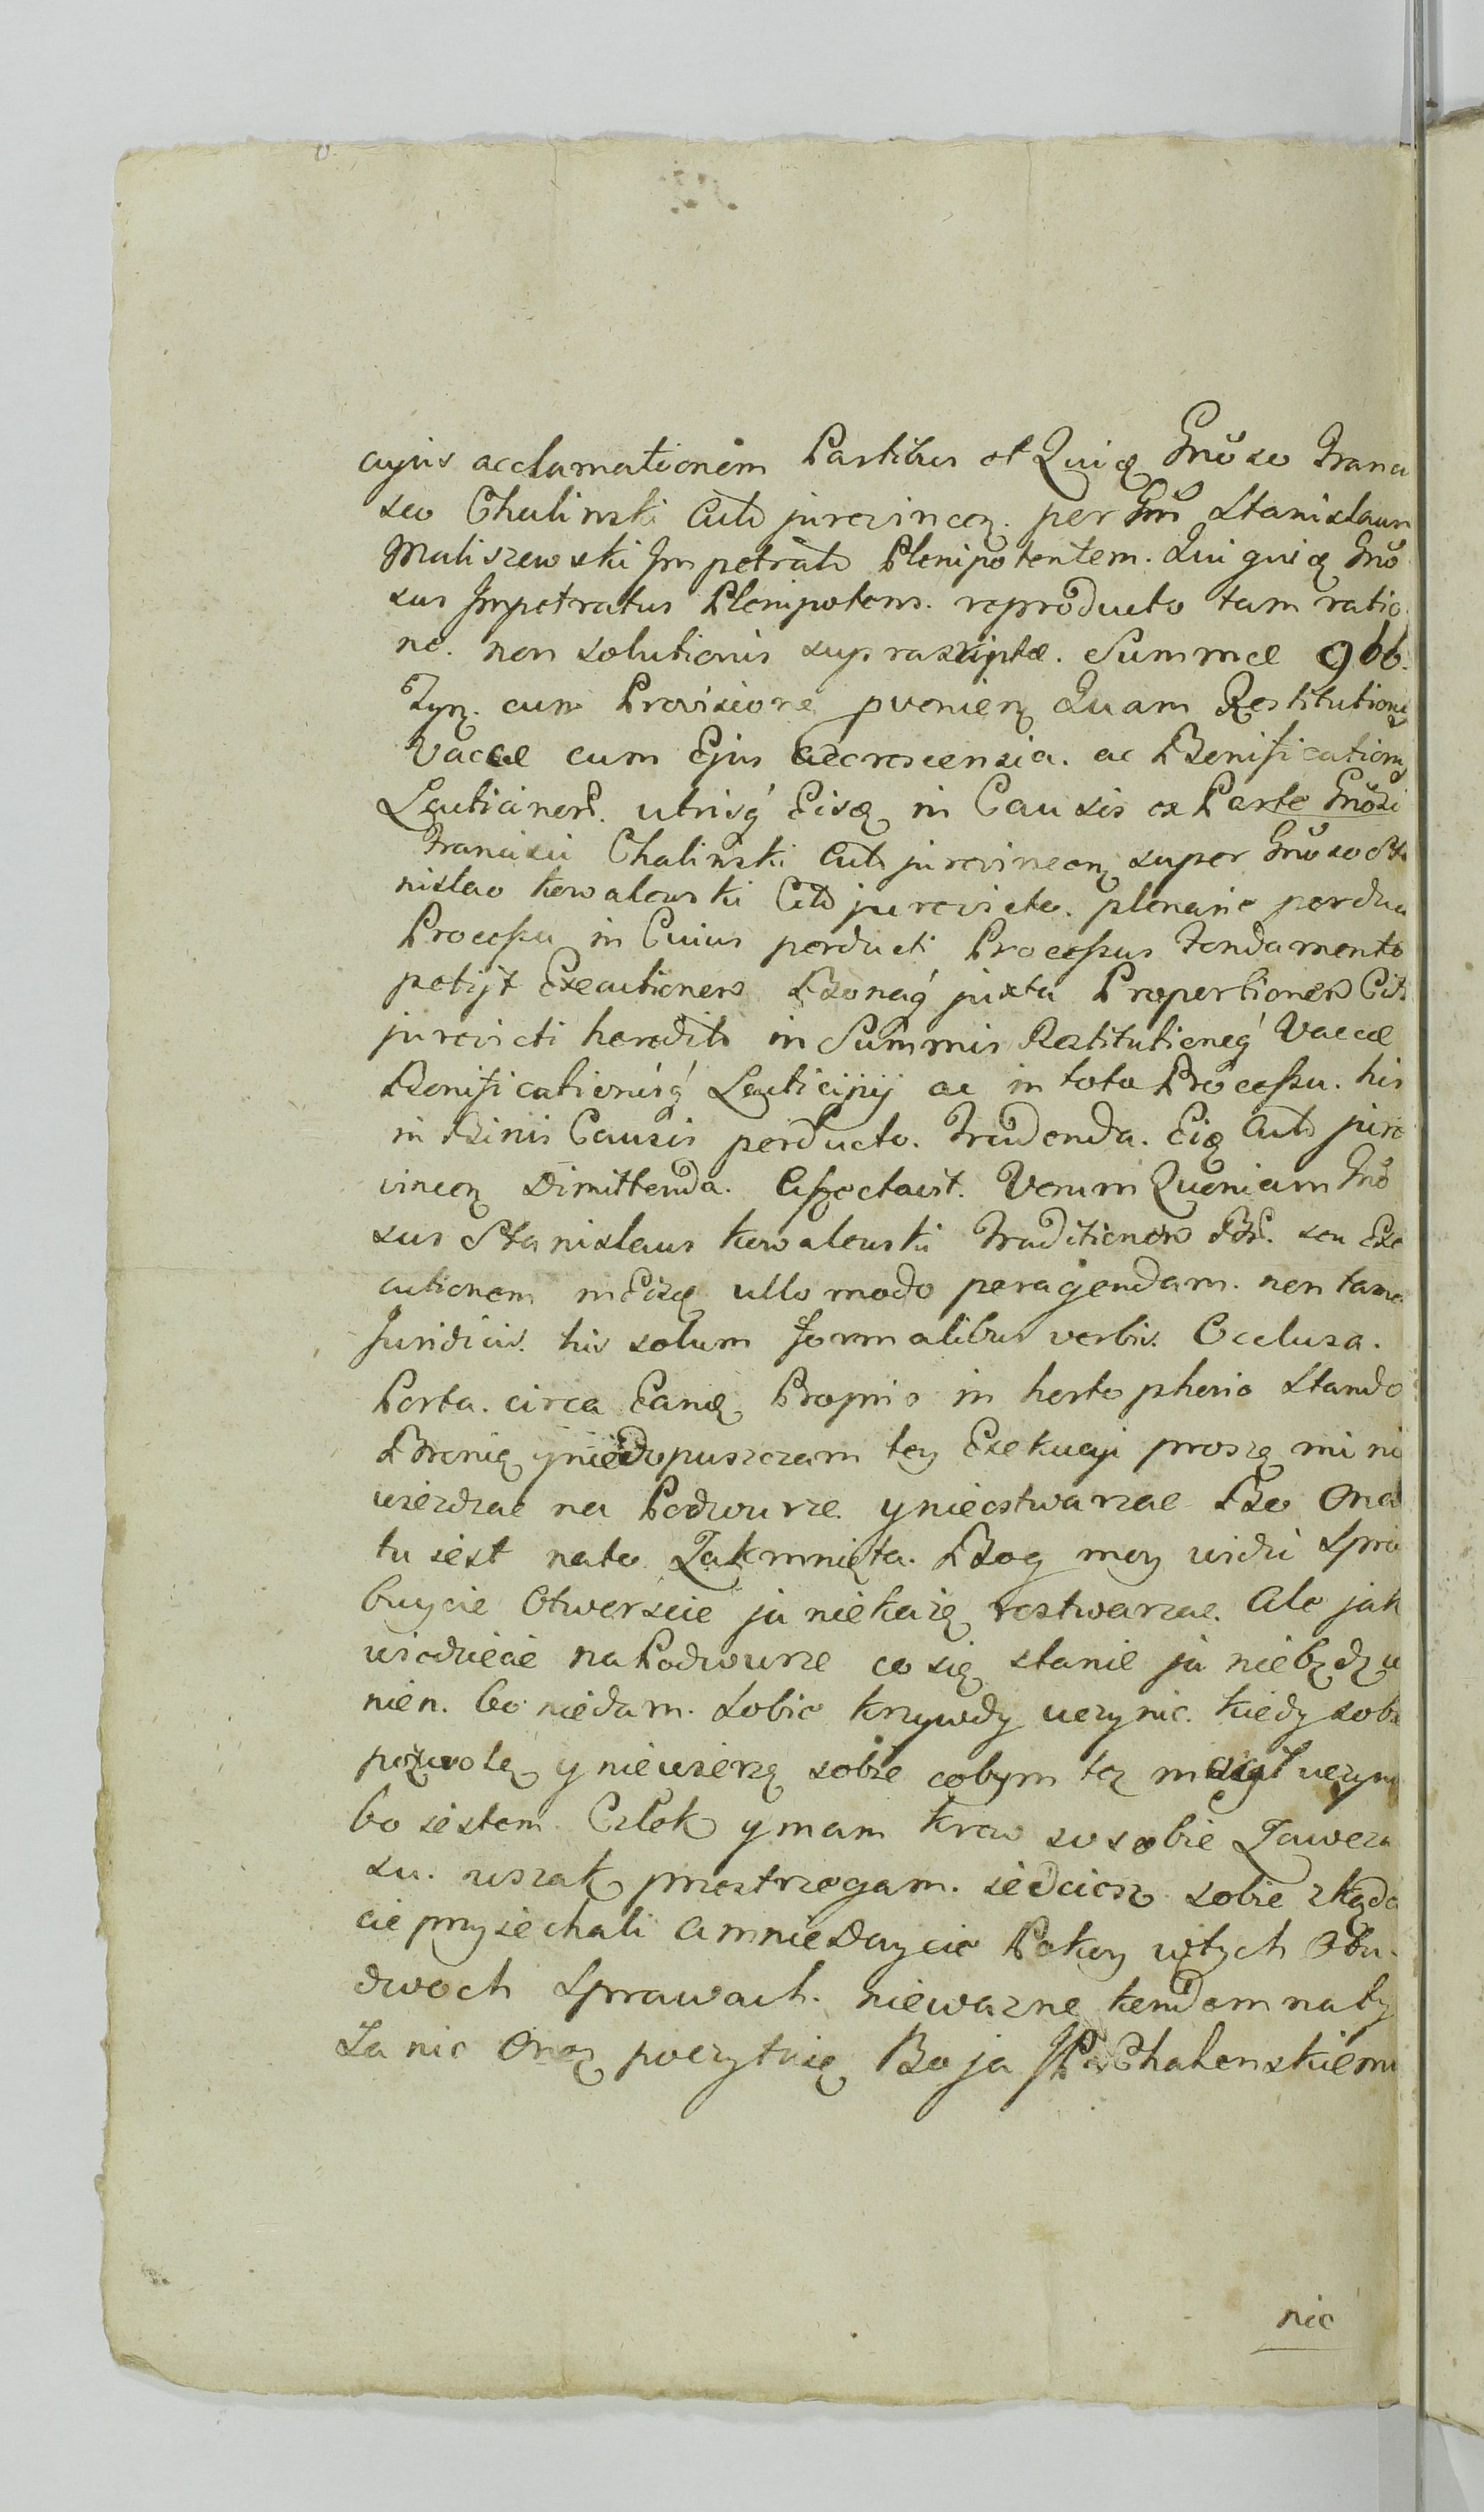 cujus acclamationem Partibus et Quidē Gnōso Franci
sco Chalinski Actō jurevincen. per Gnū Stanislaum
Maliszewski Impetratō Plenipotentem. Qui quidē Gnō
sus Impetratus Plenipotens. reproducto tam ratio
ne. non solutionis suprascriptæ. Summæ 966.
cum Provisione pvenien Quam Restitutione
Vaccæ cum Ejus accrescensia. ac Bonificatione
utrisq́ Eisdē in Causis ex Parte Gnōsi
Francisci Chalinski Actō jurevincen super Gnōso Sta
nislao Kowalewski Citō jurevicto. plenarie perduci
Processu in Cuius perducti Processus Fondamento
petijt Executionem Bonaq́ juxta Proportionem Citi
jurevicti in Summis Restitutioneq́ Vaccæ
Bonificationisq́ ac in toto Processu. his
in Binis Causis perducto. Tradenda. Eidē Actō jure
vincen Dimittenda. Affectavit. Verum Quoniam Gnō
sus Stanislaus Kowalewski Traditionem seu Exe
cutionem in Eisdē ullo modo peragendam. non tamen
Juridicis. his solum formalibus verbis. Occlusa.
Porta. circa Eandē Proprie in horto Stando
Bronię y niedopuszczam tey Exekucyi proszę mi nie
wiezdzac na Podwurze y nieostwarzac Bo Ona
tu iest nato Zakmnięta. Bog moy widzi Spro
buycie Otworscie ja niekażę rostwarzac. Ale jak
wiedziecie na Podwurze co się stanie ja niebędę wi
nien. bo niedam. Sobie krzywdy uczynic. kiedy sobie
pozwolę y niewierzę sobie cobym tez mogł uczyni
bo iestem Człek y mam krew w sobie Zawcza
su. wszak przestrzegam. iedcież sobie zkądes
cie przyiechali a mnie daycie Pokoy wtych Obu-
dwoch Sprawach. niewazne kondemnaty
Za nic Onez poczytuię Bo ja JP Chalenskiemu
nic